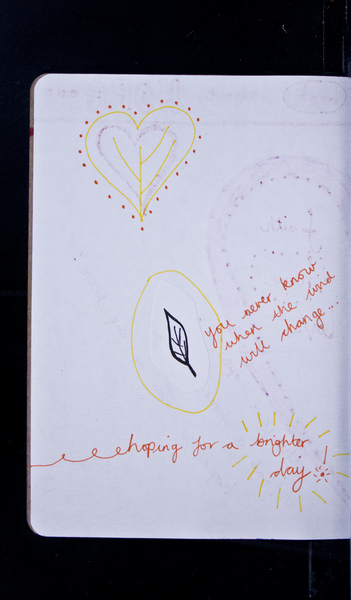 you never know
when the wind
will change...
hoping for a brighter
day!